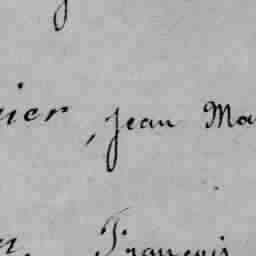 ier, Jean Ma
François